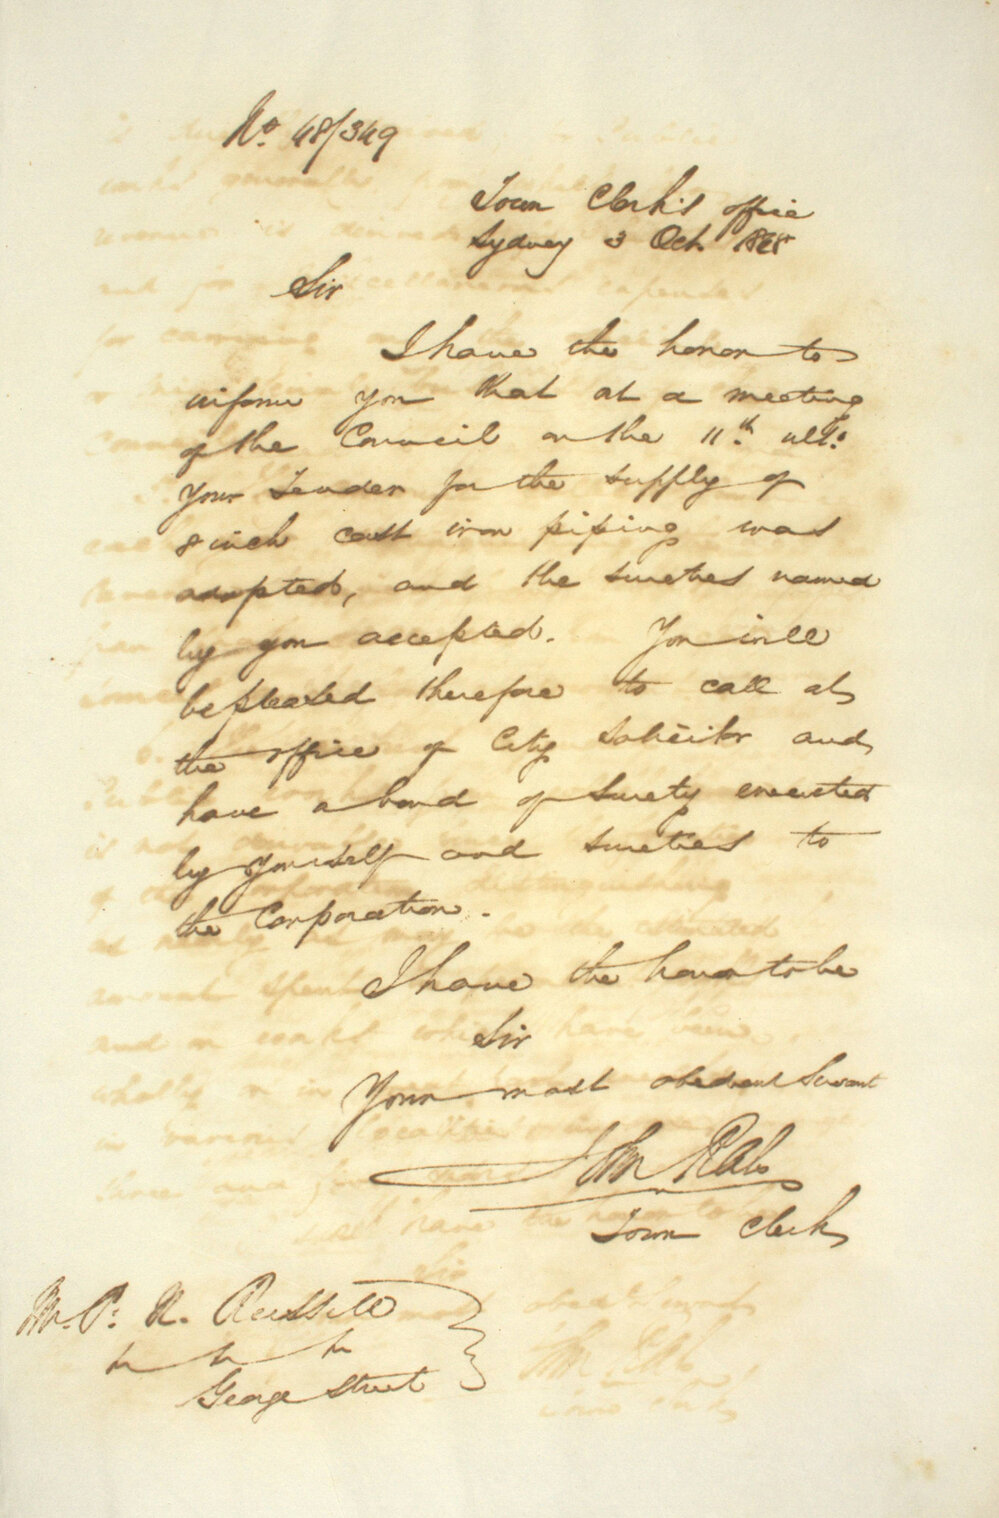 No. 48/349
Town Clerk's office
Sydney 3 Oct. 1848
Sir
I have the honor to
inform you that at a meeting
of the Council on the 11th. ulto.
your Tender for the supply of
8 inch cast iron piping was
adopted, and the sureties named
by you accepted. You will
be pleased therefore to call at
the office of City Solicitor and
have a bond of surety executed
by yourself and sureties to
the Corporation.
I have the honor to be
Sir
Your most obedient Servant
John Rae
Town Clerk
Mr. P. N. Russell
George Street